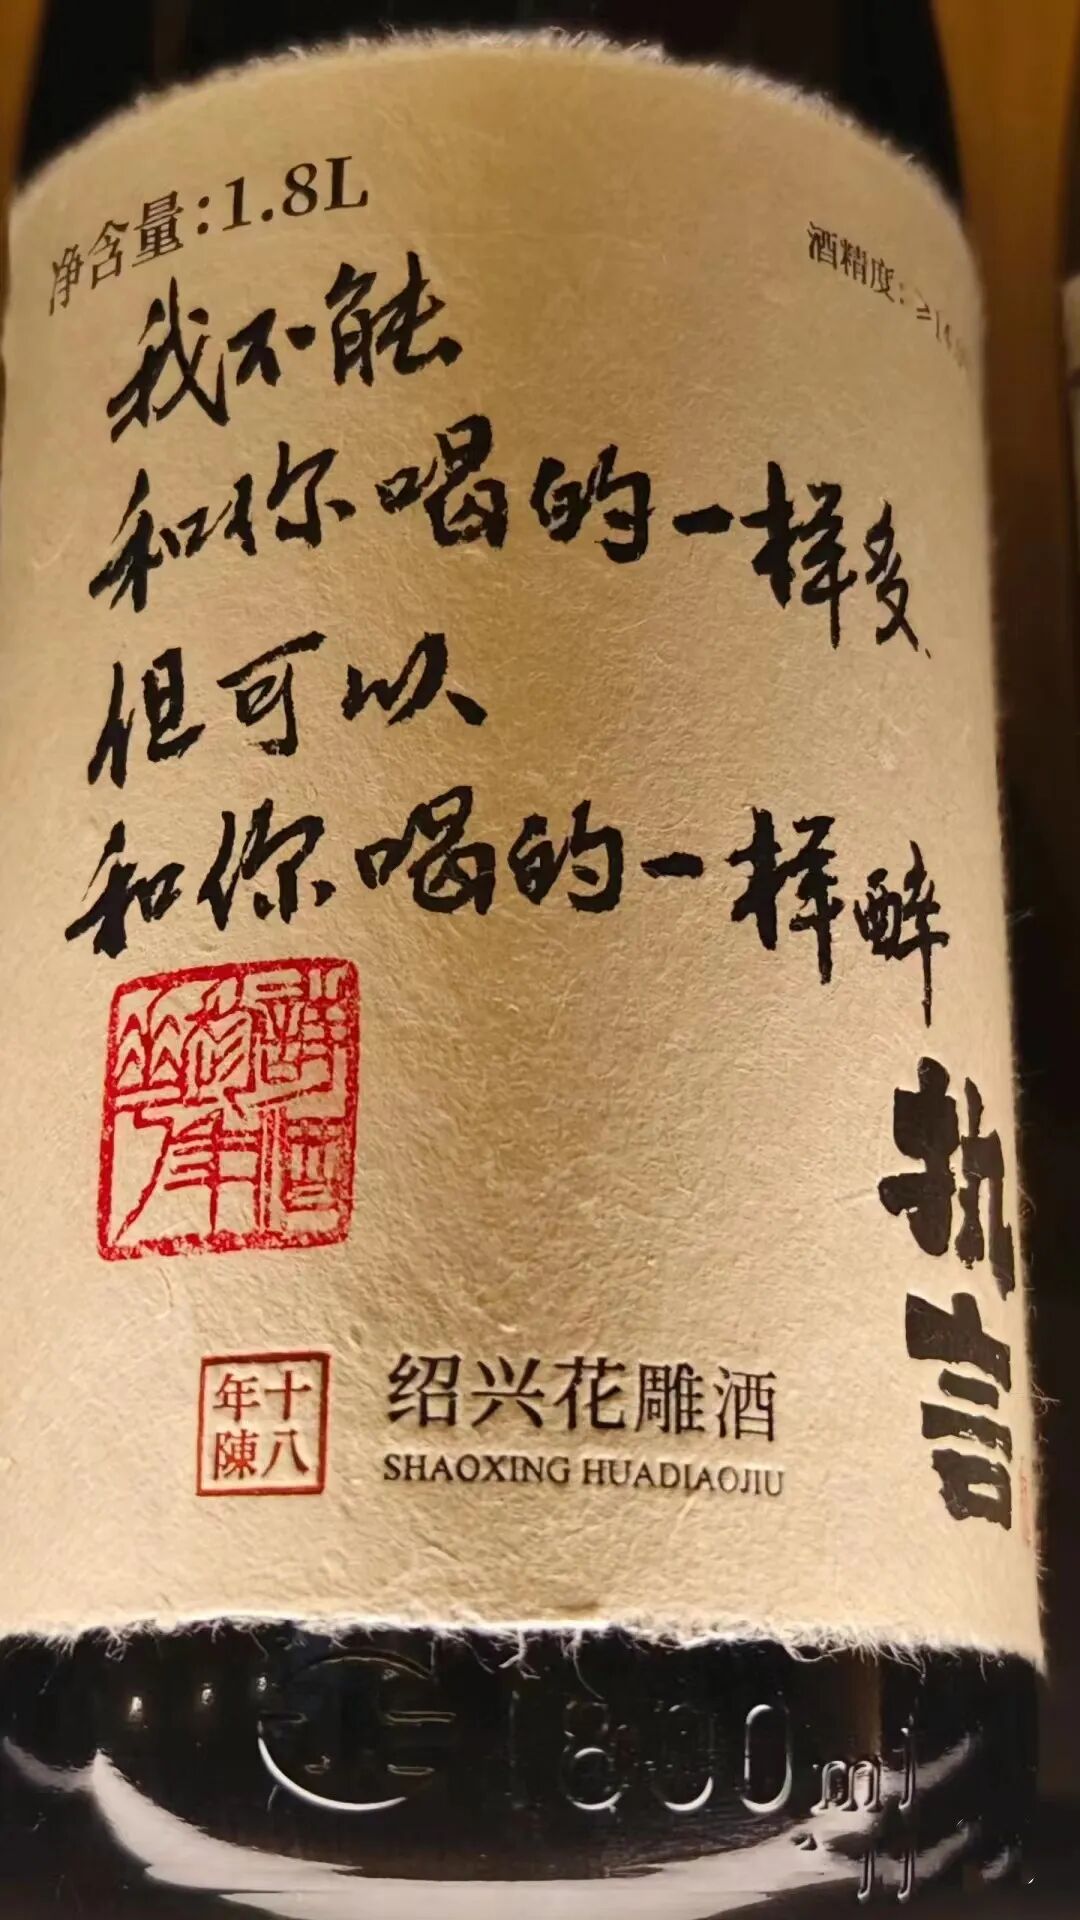 净含量:1.8L
酒精度:
我不能
和你喝的一样多
但可以
和你喝的一样醉
执言
十八年陳
绍兴花雕酒
SHAOXING HUADIAOJIU
1800ml